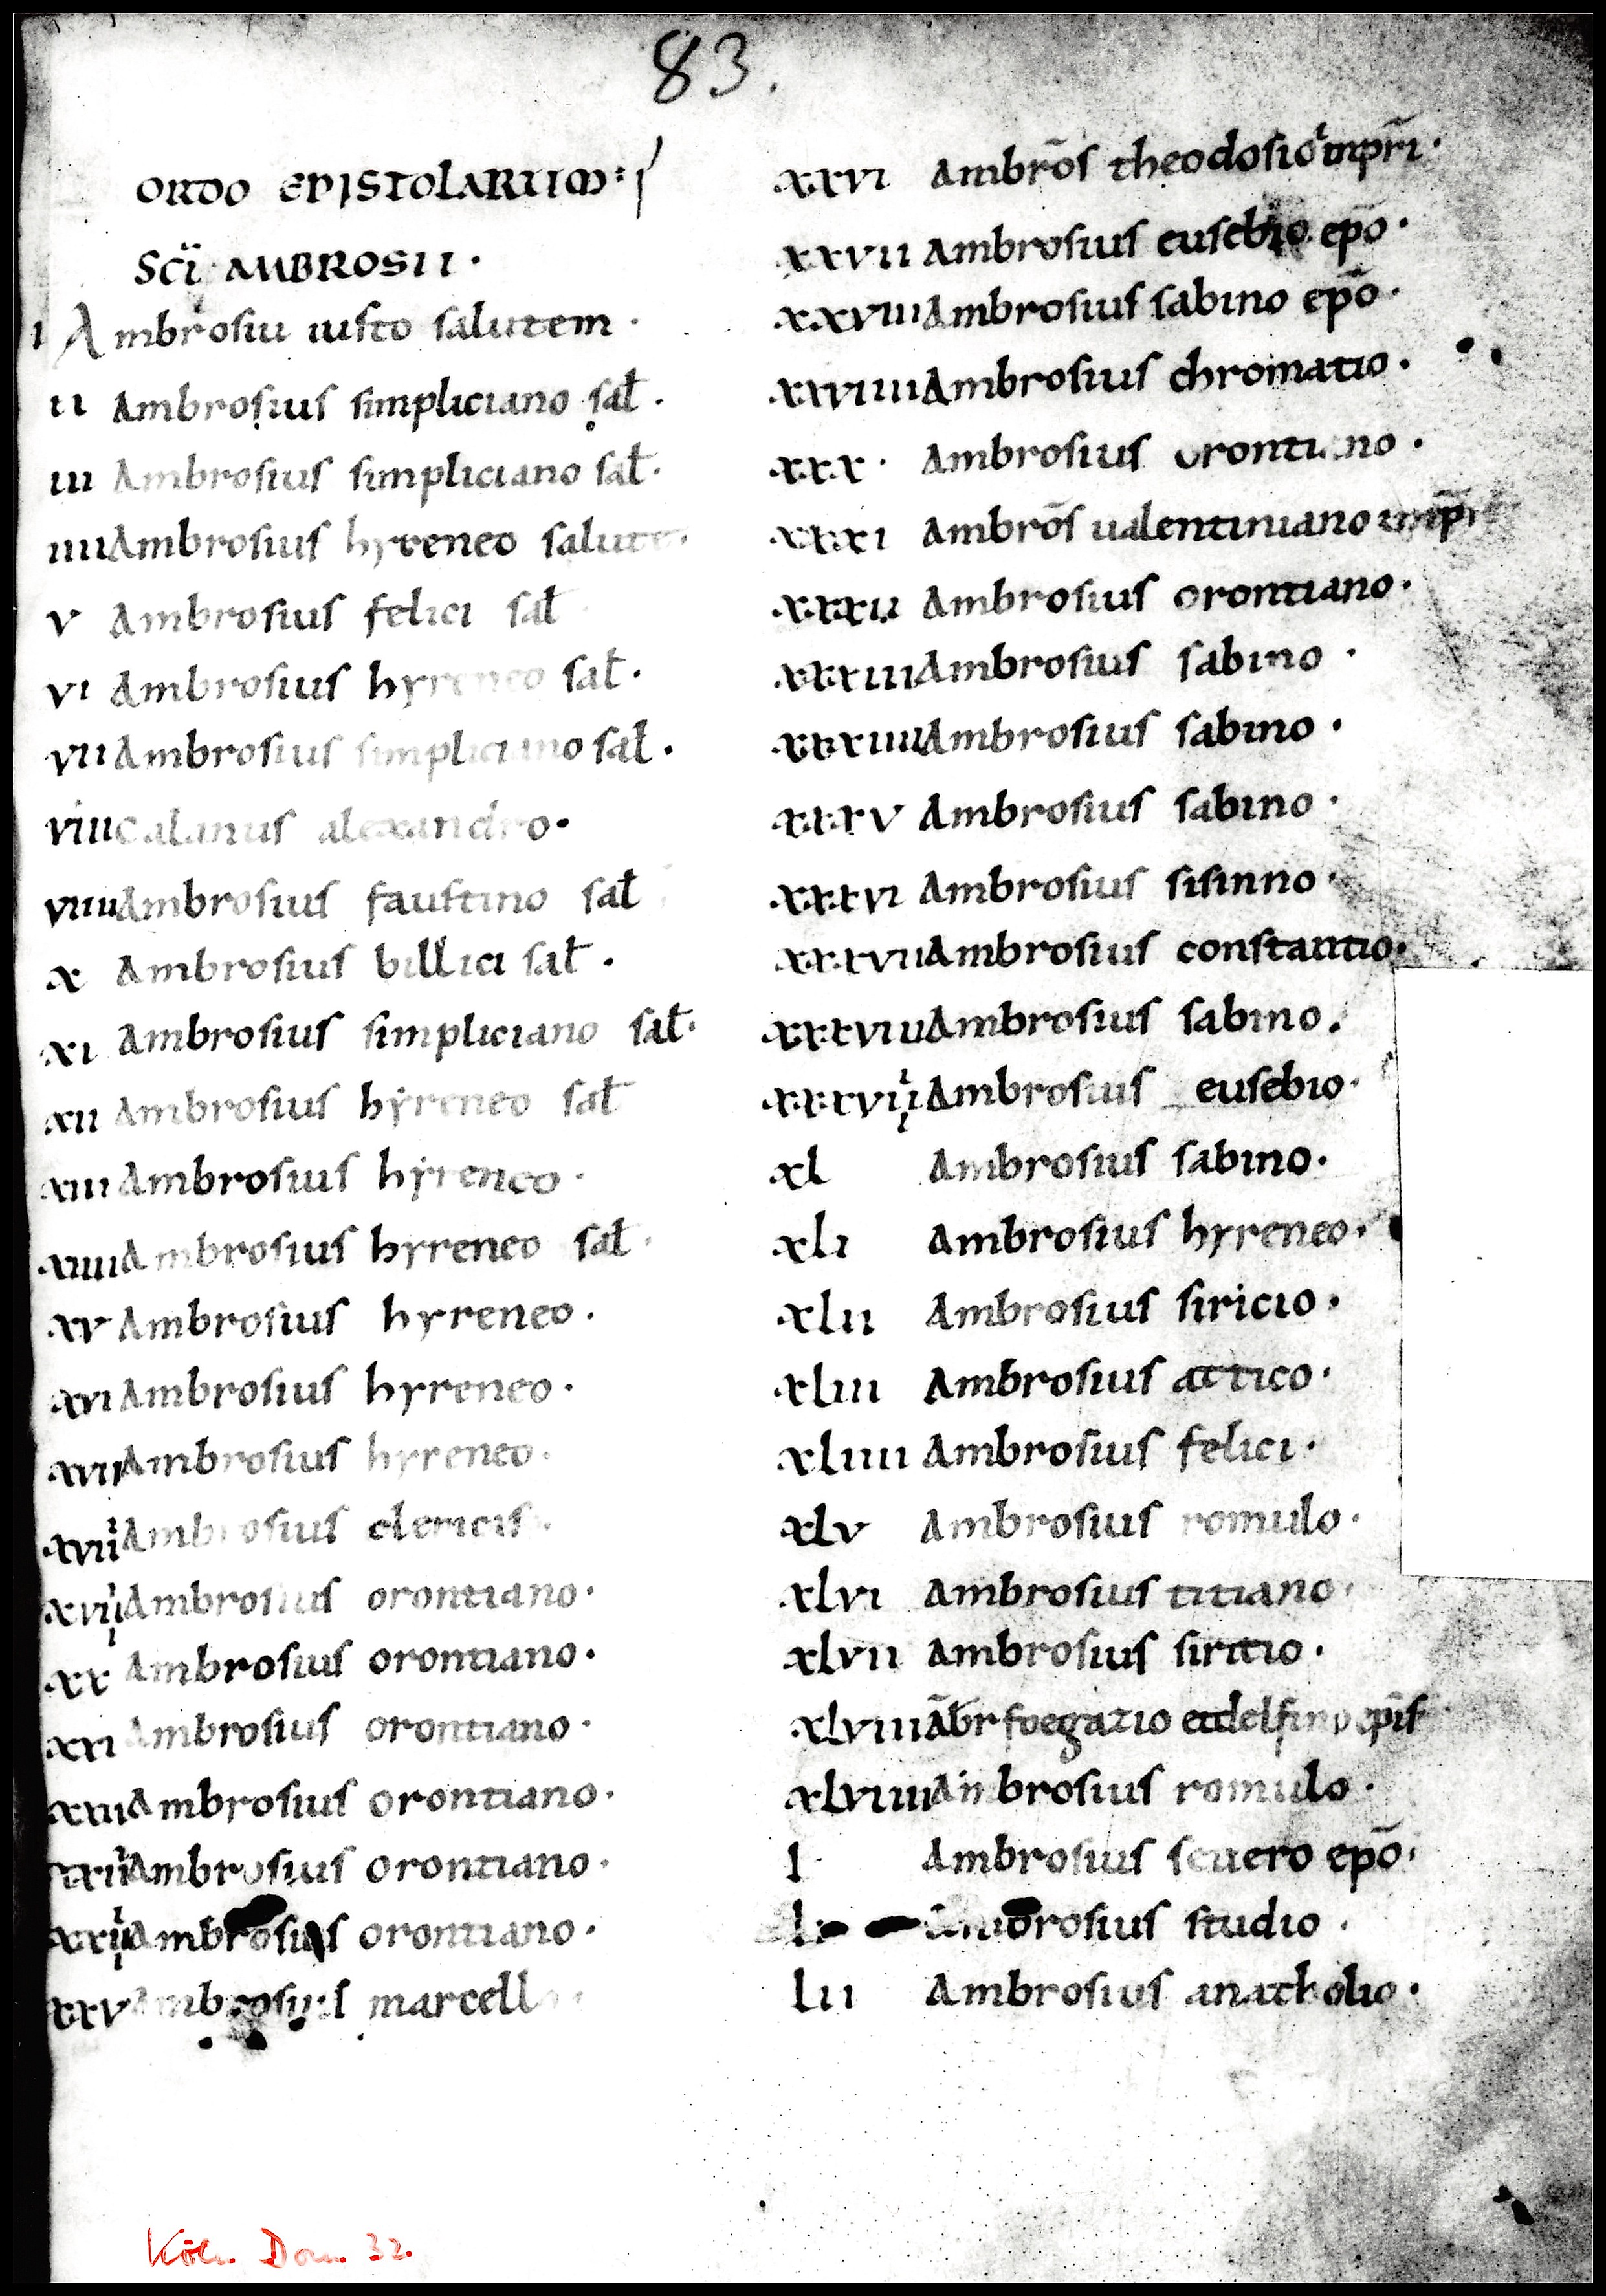 83.
ORDO EPISTOLARUM
SCI AMBROSII ·
I Ambrosiu iusto salutem ·
II Ambrosius simpliciano sal̄ ·
III Ambrosius simpliciano sal̄ ·
IIII Ambrosius hyreneo salute
V Ambrosius felici sal̄
VI Ambrosius hyreneo sal̄ ·
VII Ambrosius simpliciano sal̄ ·
VIII Calanus alexandro ·
VIIII Ambrosius faustino sal̄
X Ambrosius billici sal̄ ·
XI Ambrosius simpliciano sal̄ ·
XII Ambrosius hyreneo sal̄
XIII Ambrosius hyreneo ·
XIIII Ambrosius hyreneo sal̄ ·
XV Ambrosius hyreneo ·
XVI Ambrosius hyreneo ·
XVII Ambrosius hyreneo ·
XVIII Ambrosius clericis ·
XVIIII Ambrosius orontiano ·
XX Ambrosius orontiano ·
XXI Ambrosius orontiano ·
XXII Ambrosius orontiano ·
XXIII Ambrosius orontiano ·
XXIIII Ambrosius orontiano ·
XXV Ambrosius marcell
XXVI Ambrōs theodosio inpr̄i ·
XXVII Ambrosius eusebio ep̄o ·
XXVIII Ambrosius sabino ep̄o ·
XXVIIII Ambrosius chromatio ·
XXX · Ambrosius orontiano ·
XXXI Ambrōs ualentiniano imp̄r
XXXII Ambrosius orontiano ·
XXXIII Ambrosius sabino ·
XXXIIII Ambrosius sabino ·
XXXV Ambrosius sabino ·
XXXVI Ambrosius sisinno ·
XXXVII Ambrosius constantio ·
XXXVIII Ambrosius sabino ·
XXXVIIII Ambrosius eusebio ·
XL Ambrosius sabino ·
XLI Ambrosius hyreneo ·
XLII Ambrosius siricio ·
XLIII Ambrosius attico ·
XLIIII Ambrosius felici ·
XLV Ambrosius romulo ·
XLVI Ambrosius titiano ·
XLVII Ambrosius siritio ·
XLVIII āb̄r foegatio et delfino ep̄is
XLVIIII Ambrosius romulo ·
L Ambrosius seuero ep̄o ·
LI Ambrosius studio ·
LII Ambrosius anatholio ·
Köln. Dom. 32.